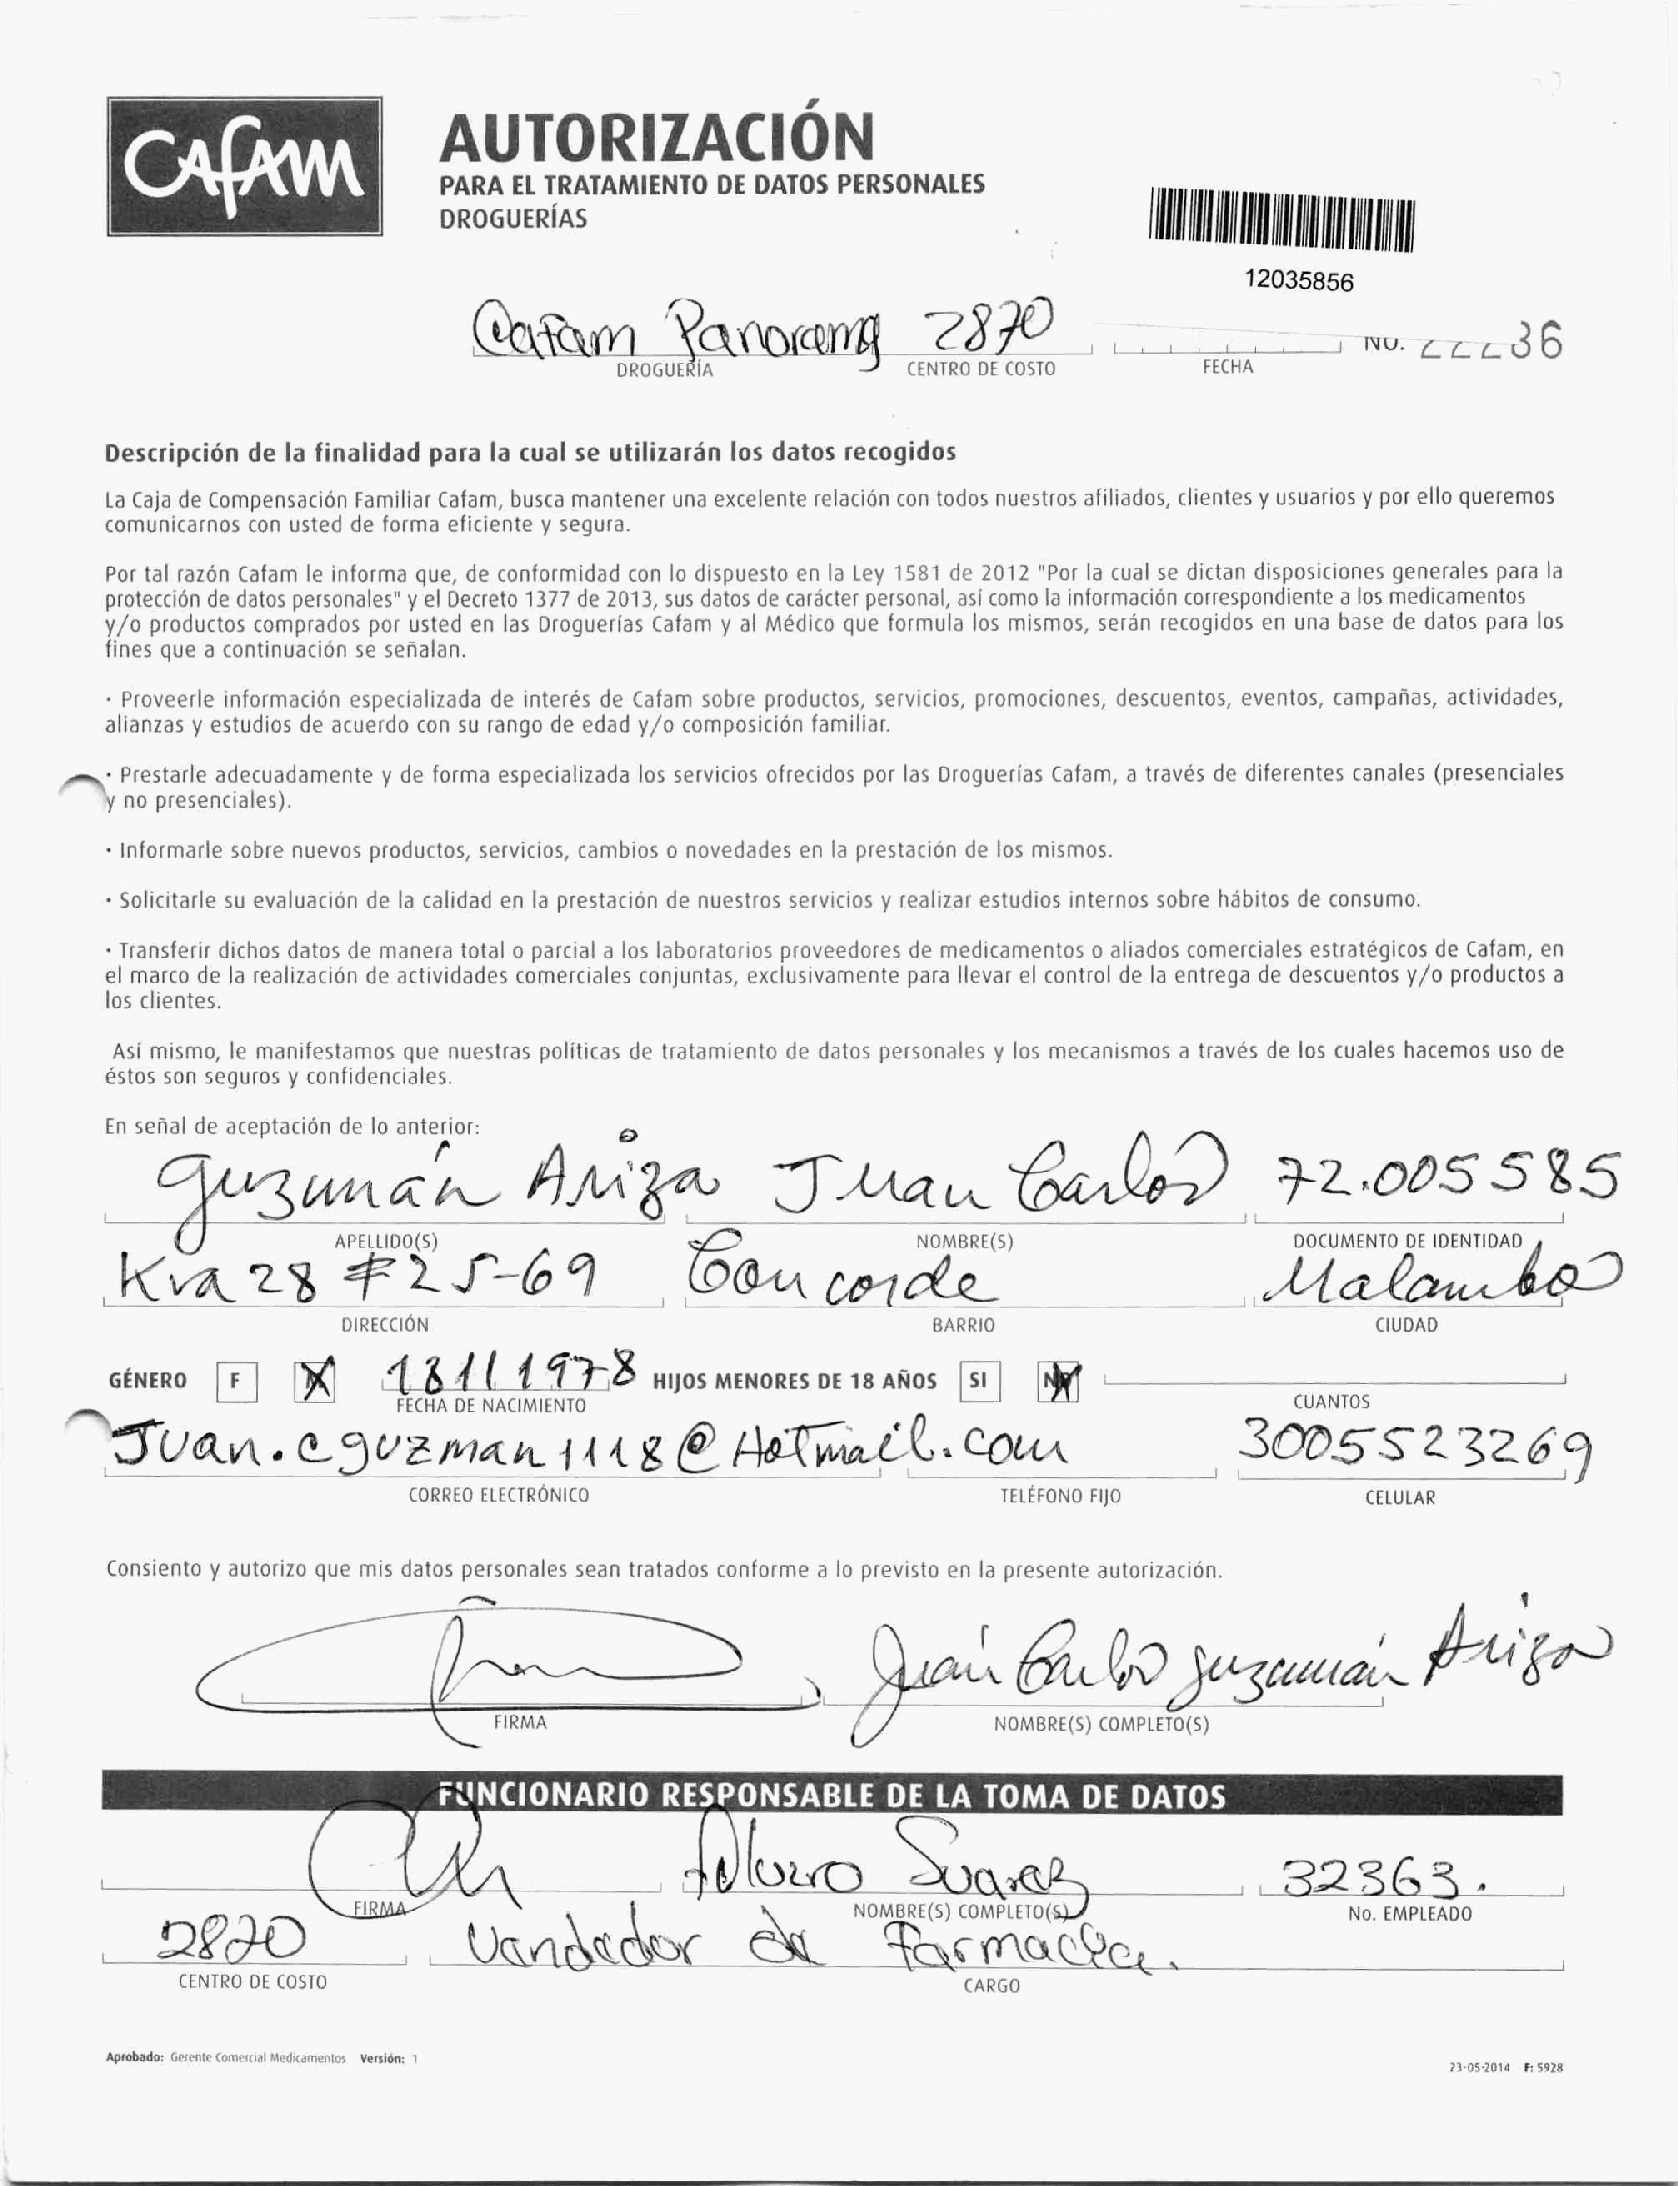 CAFAM
AUTORIZACIÓN
PARA EL TRATAMIENTO DE DATOS PERSONALES
DROGUERÍAS
12035856
Cafam Panorama 2870
No. 22236
DROGUERÍA CENTRO DE COSTO FECHA
Descripción de la finalidad para la cual se utilizarán los datos recogidos
La Caja de Compensación Familiar Cafam, busca mantener una excelente relación con todos nuestros afiliados, clientes y usuarios y por ello queremos
comunicarnos con usted de forma eficiente y segura.
Por tal razón Cafam le informa que, de conformidad con lo dispuesto en la Ley 1581 de 2012 "Por la cual se dictan disposiciones generales para la
protección de datos personales" y el Decreto 1377 de 2013, sus datos de carácter personal, así como la información correspondiente a los medicamentos
y/o productos comprados por usted en las Droguerías Cafam y al Médico que formula los mismos, serán recogidos en una base de datos para los
fines que a continuación se señalan.
· Proveerle información especializada de interés de Cafam sobre productos, servicios, promociones, descuentos, eventos, campañas, actividades,
alianzas y estudios de acuerdo con su rango de edad y/o composición familiar.
· Prestarle adecuadamente y de forma especializada los servicios ofrecidos por las Droguerías Cafam, a través de diferentes canales (presenciales
y no presenciales).
· Informarle sobre nuevos productos, servicios, cambios o novedades en la prestación de los mismos.
· Solicitarle su evaluación de la calidad en la prestación de nuestros servicios y realizar estudios internos sobre hábitos de consumo.
· Transferir dichos datos de manera total o parcial a los laboratorios proveedores de medicamentos o aliados comerciales estratégicos de Cafam, en
el marco de la realización de actividades comerciales conjuntas, exclusivamente para llevar el control de la entrega de descuentos y/o productos a
los clientes.
Así mismo, le manifestamos que nuestras políticas de tratamiento de datos personales y los mecanismos a través de los cuales hacemos uso de
éstos son seguros y confidenciales.
En señal de aceptación de lo anterior:
guzmán Ariza Juan Carlos 72.005585
APELLIDO(S) NOMBRE(S) DOCUMENTO DE IDENTIDAD
Kra 28 # 25-69 Concorde Malambo
DIRECCIÓN BARRIO CIUDAD
GÉNERO F 18111978 HIJOS MENORES DE 18 AÑOS SI NO
FECHA DE NACIMIENTO CUANTOS
Juan.cguzman1118@Hotmail.com 3005523269
CORREO ELECTRÓNICO TELÉFONO FIJO CELULAR
Consiento y autorizo que mis datos personales sean tratados conforme a lo previsto en la presente autorización.
Juan Carlos guzmán Ariza
FIRMA NOMBRE(S) COMPLETO(S)
FUNCIONARIO RESPONSABLE DE LA TOMA DE DATOS
Alvaro Suarez 32363.
FIRMA NOMBRE(S) COMPLETO(S) No. EMPLEADO
2870 Vendedor de Farmacia.
CENTRO DE COSTO CARGO
Aprobado: Gerente Comercial Medicamentos Versión: 1
23-05-2014 F: 5928